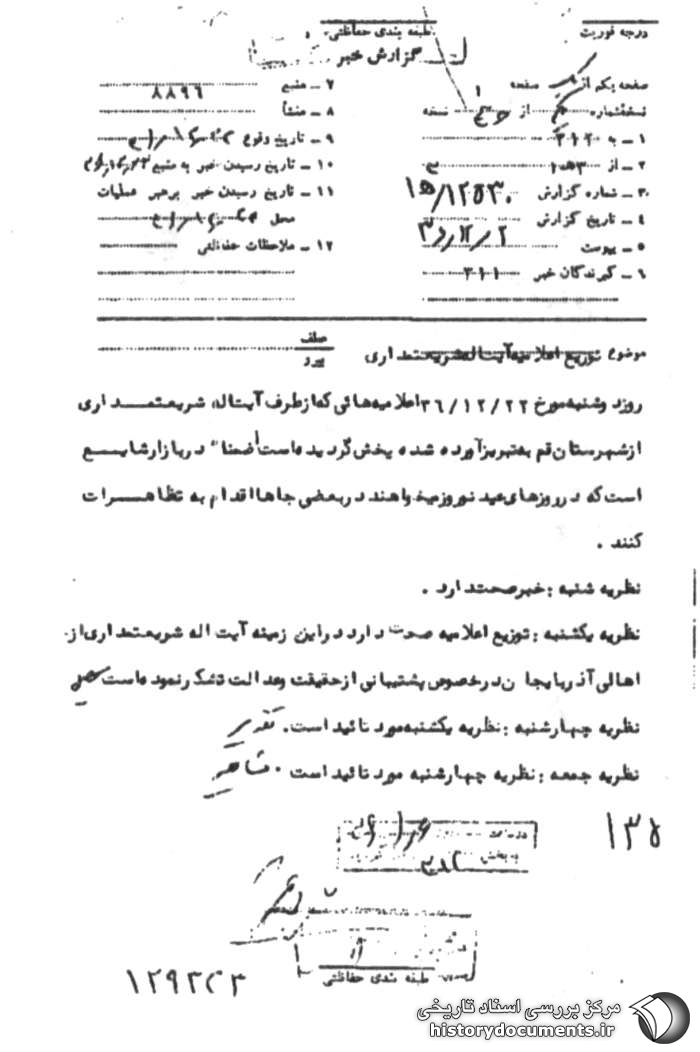 درجه فوریت
طبقه بندی حفاظتی
گزارش خبر
صفحه یکم از یک صفحه
نسخه شماره از نسخه
۱ ـ به ۳۱۲
۲ ـ از ۳ ه‍ ۱
۳ ـ شماره گزارش ۱۵/۱۲۵۳۰
۴ ـ تاریخ گزارش
۵ ـ پیوست
۶ ـ گیرندگان خبر ۳۱۱
۷ ـ منبع ۸۸۹۶
۸ ـ منشأ
۹ ـ تاریخ وقوع
۱۰ ـ تاریخ رسیدن خبر به منبع
۱۱ ـ تاریخ رسیدن خبر برهبر عملیات
محل
۱۲ ـ ملاحظات حفاظتی
موضوع توزیع اعلامیه آیت اله شریعتمداری
عطف
پیرو
روز دوشنبه مورخ ۳۶/۱۲/۲۲ اعلامیه هائی که از طرف آیت اله شریعتمداری
از شهرستان قم به تبریز آورده شده پخش گردیده است ضمنا" در بازار شایع
است که در روزهای عید نوروز میخواهند در بعضی جاها اقدام به تظاهرات
کنند .
نظریه شنبه : خبر صحت دارد .
نظریه یکشنبه : توزیع اعلامیه صحت دارد در این زمینه آیت اله شریعتمداری از
اهالی آذربایجان در خصوص پشتیبانی از حقیقت و عدالت تشکر نموده است
نظریه چهارشنبه : نظریه یکشنبه مورد تائید است . تقدیر
نظریه جمعه : نظریه چهارشنبه مورد تائید است . مشاهیر
۱۳۵
به بخش ۳۸۲
طبقه بندی حفاظتی
مرکز بررسی اسناد تاریخی
historydocuments.ir